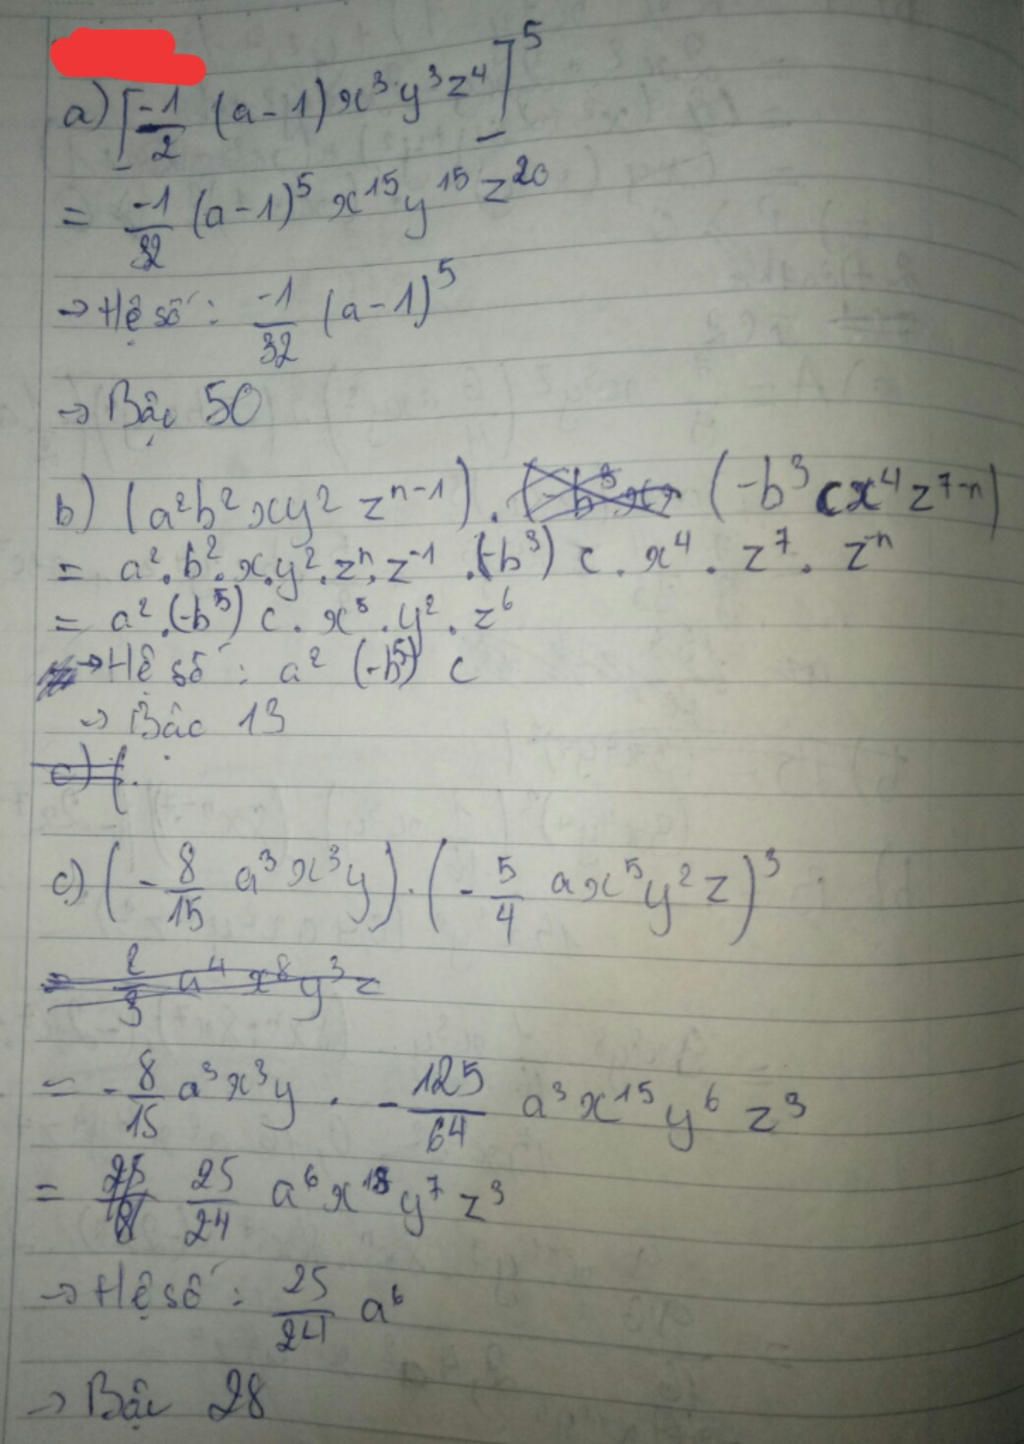 a) [-1/2 (a-1) x³y³z⁴]⁵
= -1/32 (a-1)⁵ x¹⁵y¹⁵z²⁰
→ Hệ số: -1/32 (a-1)⁵
→ Bậc 50
b) (a²b²xy² zⁿ⁻¹) . (-b³cx⁴z⁷⁻ⁿ)
= a².b².x.y².zⁿ.z⁻¹ .(-b³) c . x⁴ . z⁷ . z⁻ⁿ
= a².(-b⁵) c . x⁵ . y² . z⁶
→ Hệ số: a² (-b⁵) c
→ Bậc 13
c) (
c) (-8/15 a³x³y) . (-5/4 ax⁵y²z)³
= 2/3 a⁴x⁸y³z
= -8/15 a³x³y . -125/64 a³x¹⁵y⁶z³
= 25/24 a⁶x¹⁸y⁷z³
→ Hệ số: 25/24 a⁶
→ Bậc 28